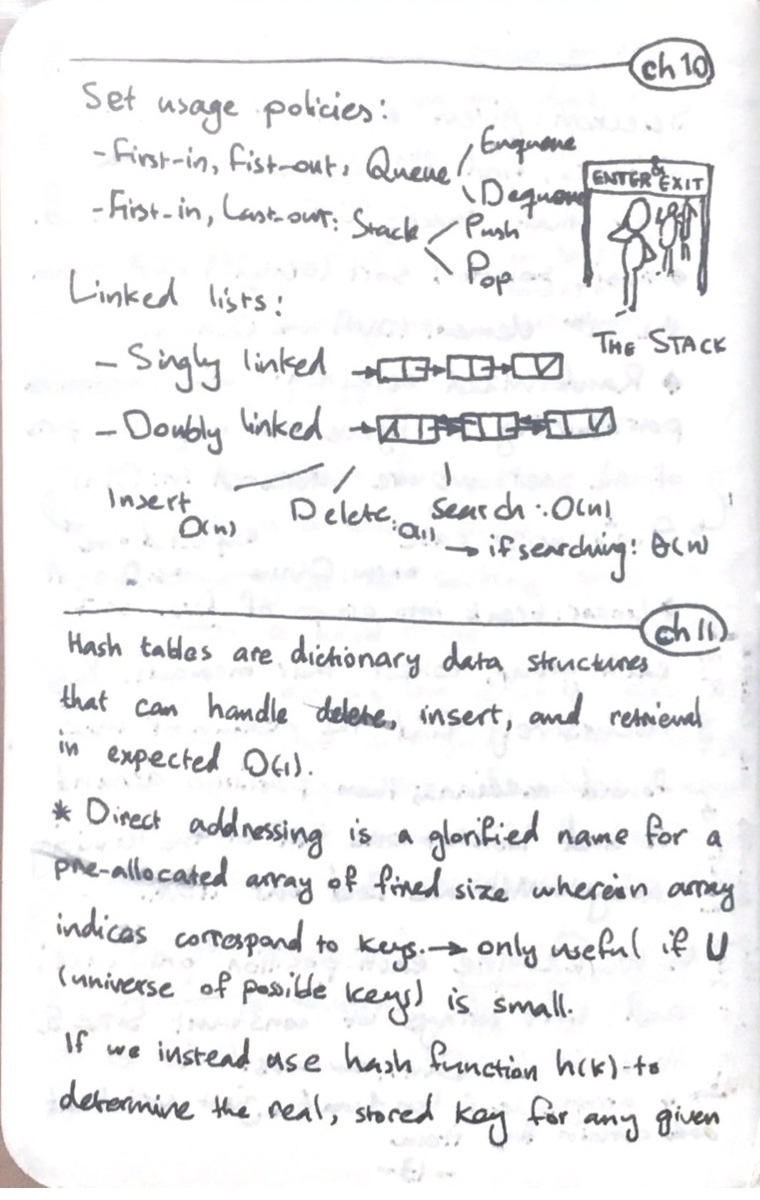 ch 10
Set usage policies:
-First-in, Fist-out: Queue
Enqueue
Dequeue
-First-in, Last-out: Stack
Push
Pop
ENTER & EXIT
THE STACK
Linked lists:
- Singly linked
- Doubly linked
Insert O(n)
Delete: O(1)
Search: O(n)
→ if searching: Θ(n)
ch 11
Hash tables are dictionary data structures
that can handle delete, insert, and retrieval
in expected O(1).
* Direct addressing is a glorified name for a
pre-allocated array of fixed size wherein array
indices correspond to keys. → only useful if U
(universe of possible keys) is small.
If we instead use hash function h(k) to
determine the real, stored key for any given